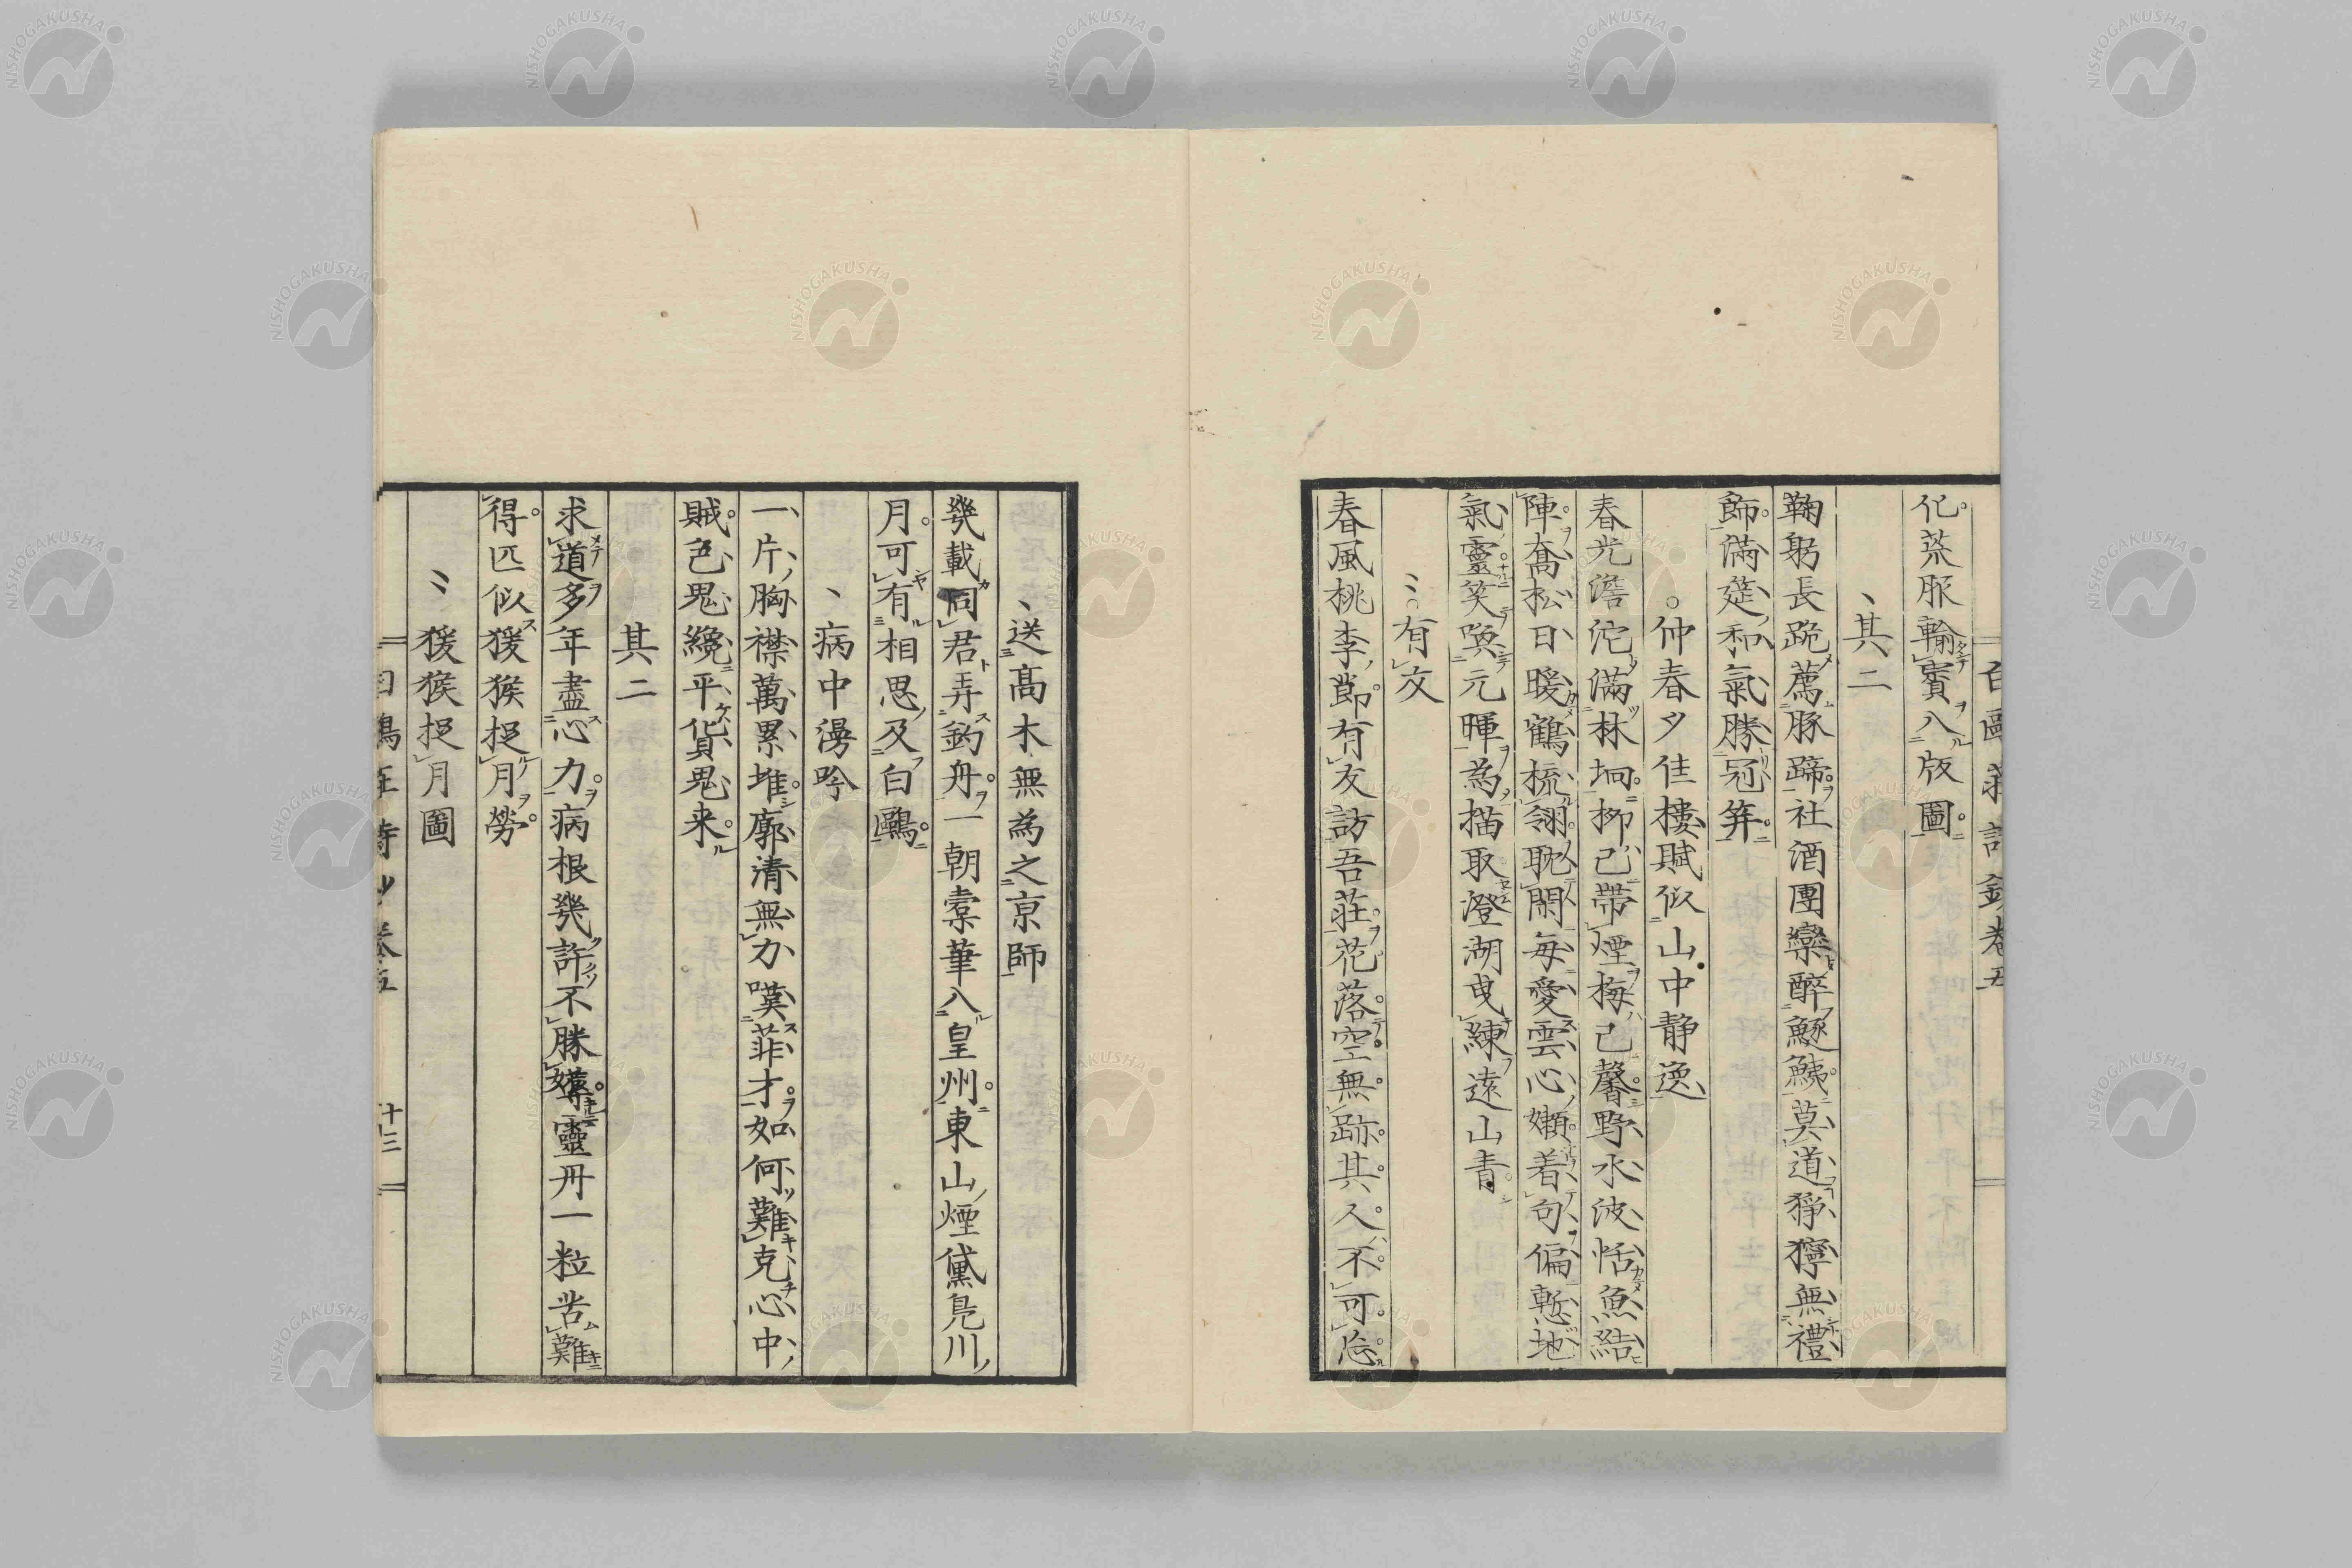 白鷗莊詩鈔卷五
化蒸豚輸賓入版圖
其二
鞠躬長跪薦豚蹄社酒團欒醉鱁鮧莫道猙獰無禮
飾滿莚和氣勝冠笄
仲春夕佳樓賦似山中静逸
春光澹沱滿林坰柳已帶煙梅已馨野水波恬魚結
陣喬松日暖鶴梳翎耽閑每愛雲心嬾着句偏慙地
氣靈笑喚元暉為描取澄湖曳練遠山青
有友
春風桃李節有友訪吾莊花落空無跡其人不可忘
送髙木無為之京師
幾載同君弄釣舟一朝槖筆入皇州東山煙黛鳧川
月可有相思及白鷗
病中謾吟
一片胸襟萬累堆廓清無力嘆菲才如何難克心中
賊色鬼纔平貨鬼来
其二
求道多年盡心力病根幾許不勝靈丹一粒苦難
得匹似猨猴捉月勞
猨猴捉月圖
十三
NISHOGAKUSHA